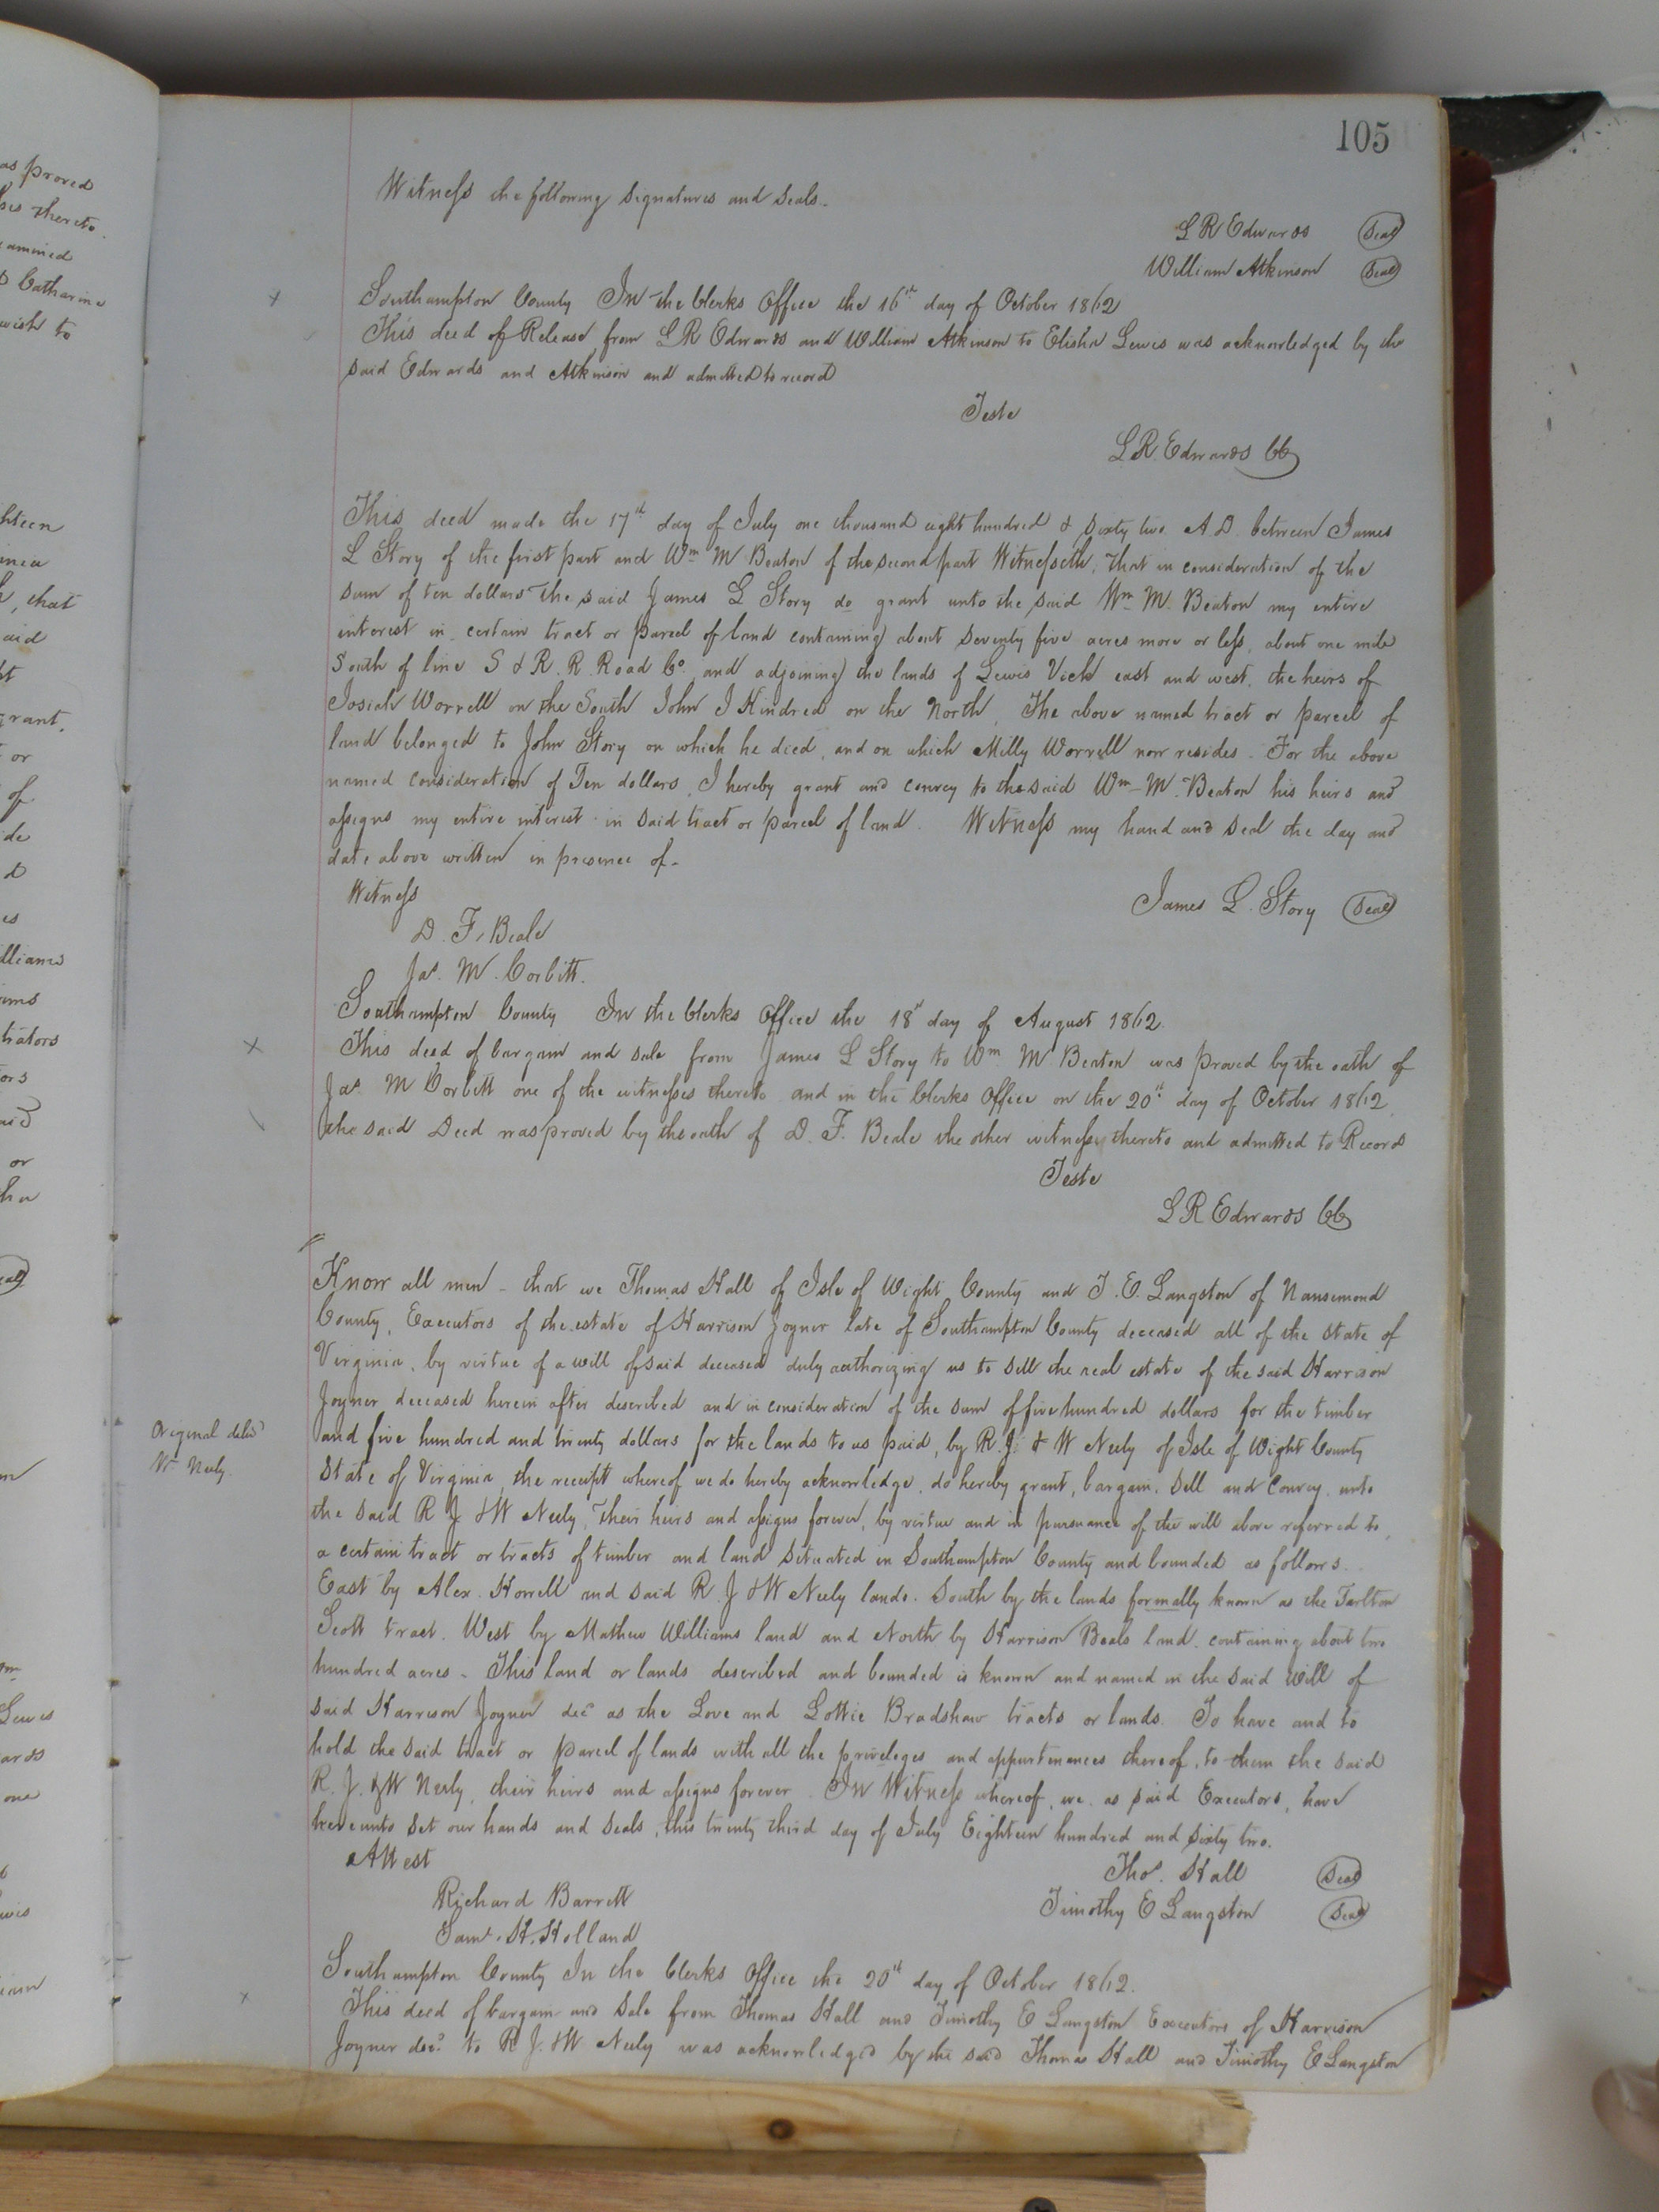 105
Witness the following signatures and seals.
L R Edwards Seal
William Atkinson Seal
Southampton County In the Clerks Office the 16th day of October 1862
This deed of Release from L R Edwards and William Atkinson to Elisha Lewis was acknowledged by the
said Edwards and Atkinson and admitted to record
Teste
L R. Edwards CC
This deed made the 17th day of July one thousand eight hundred & sixty two A.D. between James
L Story of the first part and Wm M Beaton of the second part Witnesseth, that in consideration of the
sum of ten dollars the said James L Story do grant unto the said Wm M. Beaton my entire
interest in certain tract or parcel of land containing about seventy five acres more or less, about one mile
South of line S & R. R. Road Co. and adjoining the lands of Lewis Vick east and west, the heirs of
Josiah Worrell on the South John J Kindred on the North. The above named tract or parcel of
land belonged to John Story on which he died, and on which Milly Worrell now resides. For the above
named consideration of Ten dollars, I hereby grant and convey to the said Wm M. Beaton his heirs and
assigns my entire interest in said tract or parcel of land. Witness my hand and seal the day and
date above written in presence of-
Witness
James L. Story Seal
D. F. Beale
Jas. M. Corbitt.
Southampton County In the Clerks Office the 18th day of August 1862.
This deed of bargain and sale from James L Story to Wm M Beaton was proved by the oath of
Jas. M Corbitt one of the witnesses thereto and in the Clerks Office on the 20th day of October 1862
the said Deed was proved by the oath of D. F. Beale the other witness thereto and admitted to Record
Teste
L R Edwards CC
Know all men - that we Thomas Hall of Isle of Wight County and T. E. Langston of Nansemond
County, Executors of the estate of Harrison Joyner late of Southampton County deceased all of the State of
Virginia, by virtue of a will of said deceased duly authorizing us to sell the real estate of the said Harrison
Joyner deceased herein after described and in consideration of the sum of five hundred dollars for the timber
Original delivd
and five hundred and twenty dollars for the lands to us paid, by R. J. & W Neely of Isle of Wight County
Wm Neely.
State of Virginia, the receipt whereof we do hereby acknowledge, do hereby grant, bargain, sell and convey unto
the said R J & W Neely, their heirs and assigns forever, by virtue and in pursuance of the will above referred to,
a certain tract or tracts of timber and land situated in Southampton County and bounded as follows.
East by Alex. Worrell and said R. J & W Neely lands. South by the lands formally known as the Tarlton
Scott tract. West by Mathew Williams land and North by Harrison Beals land. containing about two
hundred acres - This land or lands described and bounded is known and named in the said will of
said Harrison Joyner decd as the Love and Lottie Bradshaw tracts or lands. To have and to
hold the said tract or parcel of lands with all the priveleges and appurtenances thereof, to them the said
R. J. & W Neely, their heirs and assigns forever. In Witness whereof, we as said Executors, have
hereunto set our hands and seals, this twenty third day of July Eighteen hundred and sixty two.
Attest
Thos. Hall Seal
Richard Barrett
Timothy E Langston Seal
Saml. H. Holland
Southampton County In the Clerks Office the 20th day of October 1862.
This deed of bargain and sale from Thomas Hall and Timothy E Langston Executors of Harrison
Joyner decd. to R. J. & W Neely was acknowledged by the said Thomas Hall and Timothy E Langston